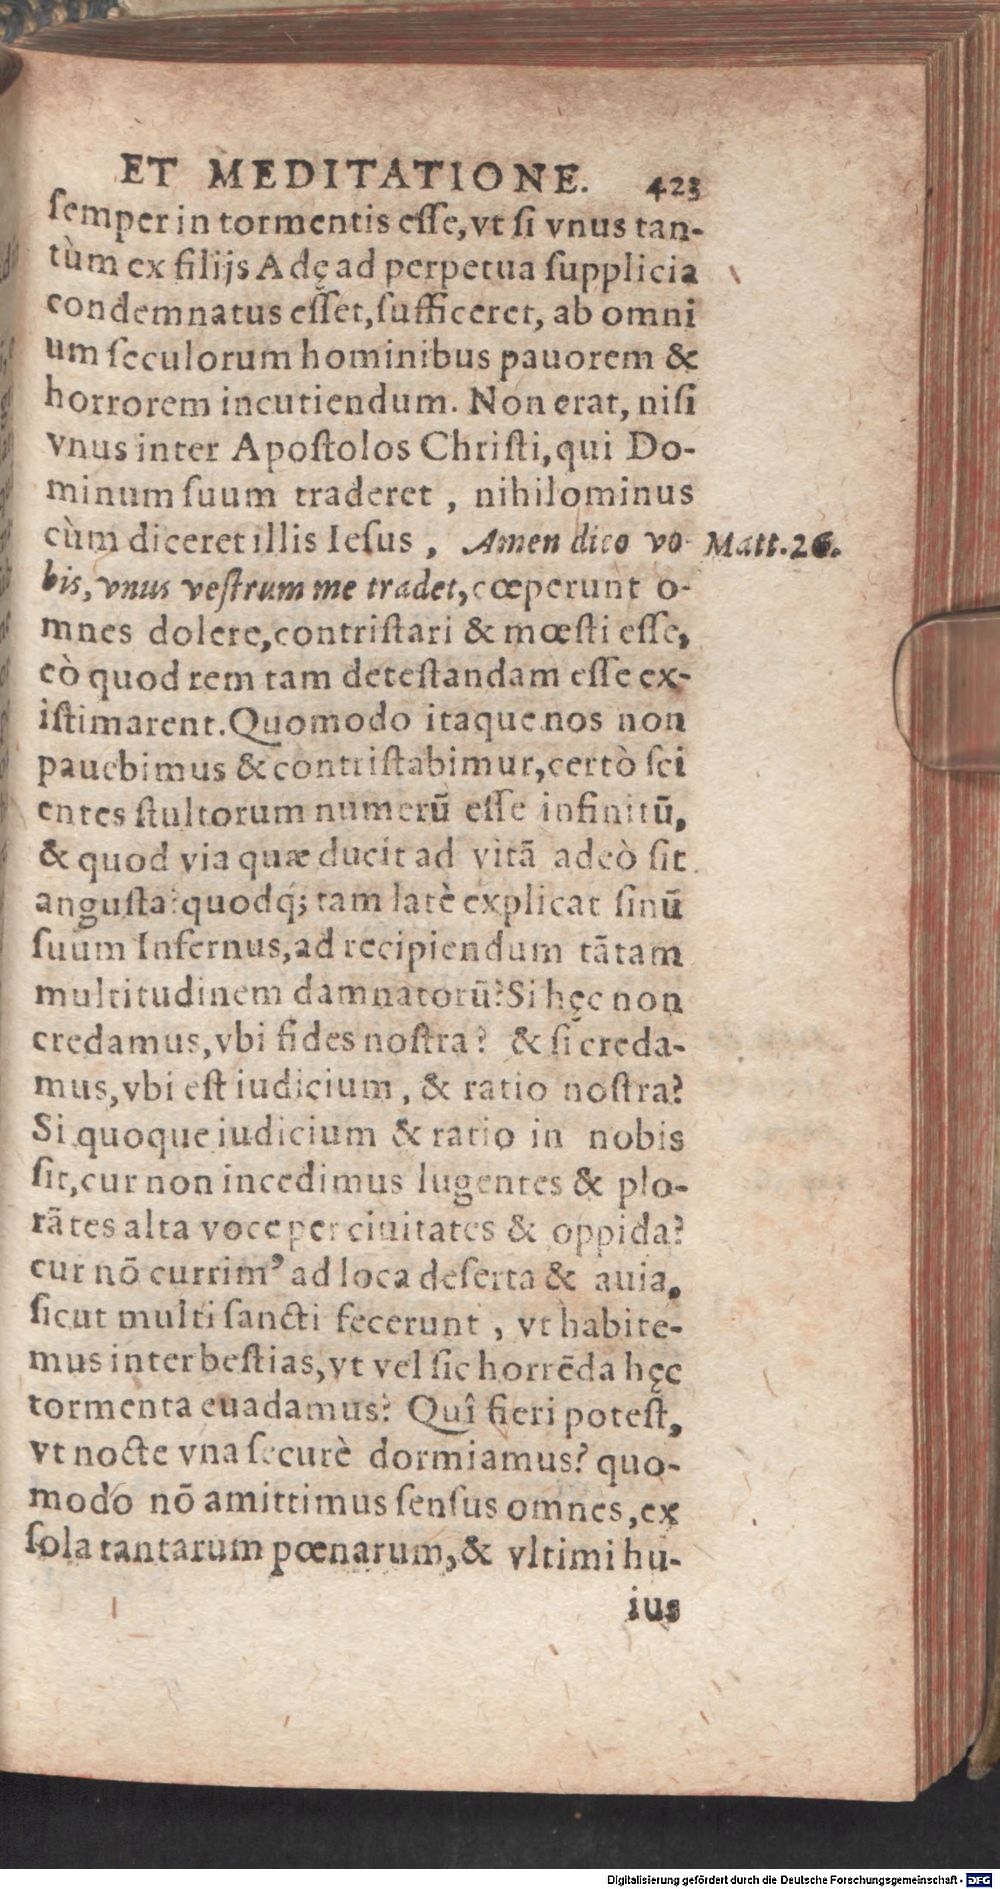 ET MEDITATIONE. 423
ſemper in tormentis eſſe, vt ſi vnus tan-
tùm ex filijs Adę ad perpetua ſupplicia
condemnatus eſſet, ſufficeret, ab omni
um ſeculorum hominibus pauorem &
horrorem incutiendum. Non erat, niſi
vnus inter Apoſtolos Chriſti, qui Do-
minum ſuum traderet, nihilominus
cùm diceret illis Ieſus, Amen dico vo- Matt. 26.
bis, vnus veſtrum me tradet, cœperunt o-
mnes dolere, contriſtari & mœſti eſſe,
eò quod rem tam deteſtandam eſſe ex-
iſtimarent. Quomodo itaque nos non
pauebimus & contriſtabimur, certò ſci
entes ſtultorum numerū eſſe infinitū,
& quod via quæ ducit ad vitā adeò ſit
anguſta? quodq́; tam latè explicat ſinū
ſuum Infernus, ad recipiendum tātam
multitudinem damnatorū? Si hęc non
credamus, vbi fides noſtra? & ſi creda-
mus, vbi eſt iudicium, & ratio noſtra?
Si quoque iudicium & ratio in nobis
ſit, cur non incedimus lugentes & plo-
rātes alta voce per ciuitates & oppida?
cur nō currimꝰ ad loca deſerta & auia,
ſicut multi ſancti fecerunt, vt habite-
mus inter beſtias, vt vel ſic horrēda hęc
tormenta euadamus? Quî fieri poteſt,
vt nocte vna ſecurè dormiamus? quo-
modo nō amittimus ſenſus omnes, ex
ſola tantarum pœnarum, & vltimi hu-
ius
Digitalisierung gefördert durch die Deutsche Forschungsgemeinschaft - DFG